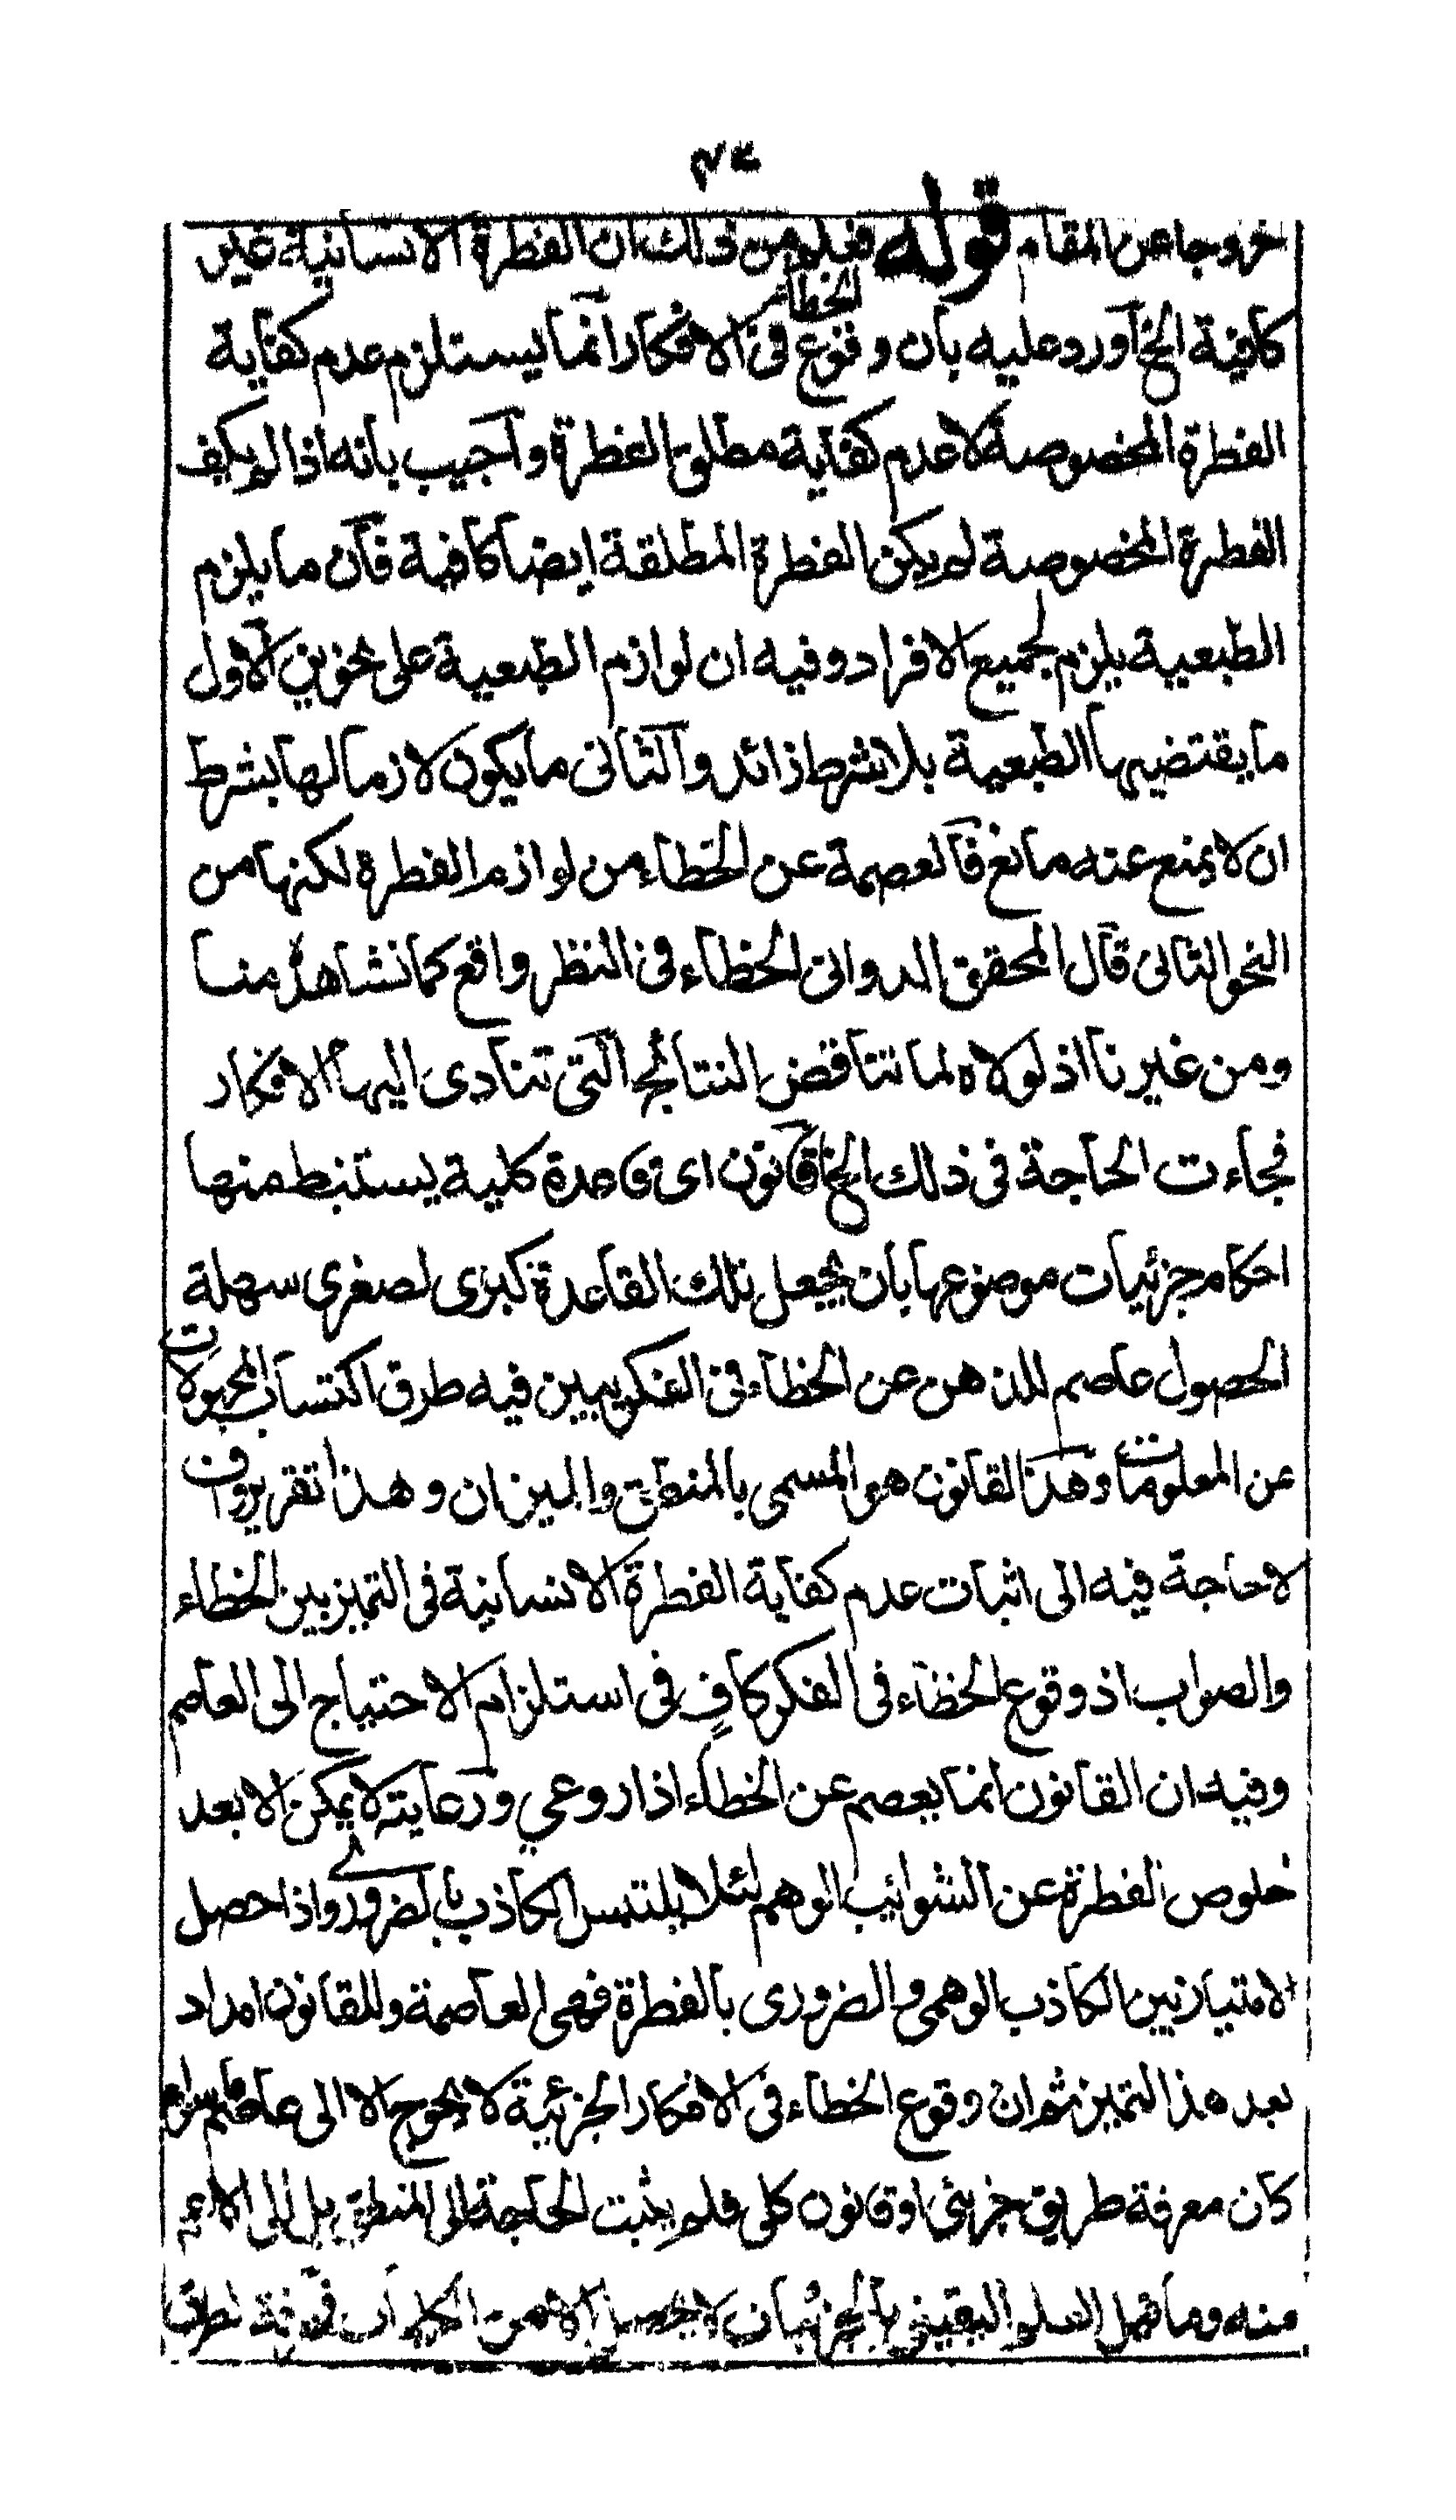 ٢٤
خروجا عن المقام قوله فعلم من ذلك ان الفطرة الانسانية غير
كافية الخ اورد عليه بان وقوع الخطاء فى الافكار انما يستلزم عدم كفاية
الفطرة المخصوصة لا عدم كفاية مطلق الفطرة واجيب بانه اذا لم يكف
الفطرة المخصوصة لم يكن الفطرة المطلقة ايضا كافية فان ما يلزم
الطبعية يلزم لجميع الافراد وفيه ان لوازم الطبعية على نحوين الاول
ما يقتضيها الطبعية بلا شرط زائد والثانى ما يكون لازما لها بشرط
ان لا يمنع عنه مانع فالعصمة عن الخطاء من لوازم الفطرة لكنها من
النحو الثانى قال المحقق الدوانى الخطاء فى النظر واقع كما نشاهده منا
ومن غيرنا اذ لولاه لما تناقض النتائج التى تتادى اليها الافكار
فجاءت الحاجة فى ذلك الخ قانون اى قاعدة كلية يستنبط منها
احكام جزئيات موضوعها بان يجعل تلك القاعدة كبرى لصغرى سهلة
الحصول عاصم للذهن عن الخطاء فى الفكر يبين فيه طرق اكتساب المجهولات
عن المعلومات وهذا القانون هو المسمى بالمنطق والميزان وهذا تقرير واف
لا حاجة فيه الى اثبات عدم كفاية الفطرة الانسانية فى التميز بين الخطاء
والصواب اذ وقوع الخطاء فى الفكر كافٍ فى استلزام الاحتياج الى العاصم
وفيه ان القانون انما يعصم عن الخطاء اذا روعي ورعايته لا يمكن الا بعد
خلوص الفطرة عن الشوائب الوهم لئلا يلتبس الكاذب بالضرورى واذا حصل
الامتياز بين الكاذب الوهمى والضرورى بالفطرة فهى العاصمة وللقانون امداد
بعد هذا التميز ثم ان وقوع الخطاء فى الافكار الجزئية لا يحوج الا الى عاصم سواء
كان معرفة طريق جزئى او قانون كلى فلم يثبت الحاجة الى المنطق بل الى الاعم
منه وما قيل العلم اليقينى بالجزئيات لا يحصل الا من